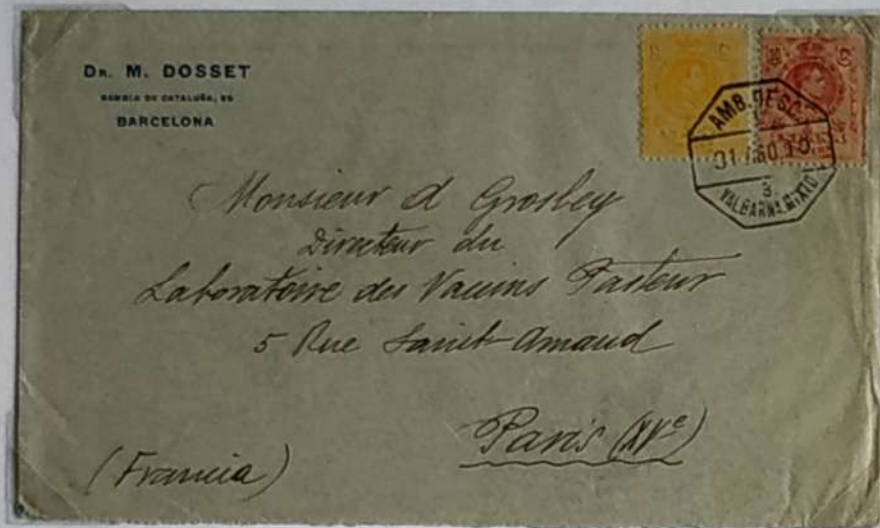 DR. M. DOSSET
RAMBLA DE CATALUÑA,
BARCELONA
AMB. DESC.
VALBARNA.MIXTO
Monsieur d Grosbey
Directeur du
Laboratoire des Vaccins Pasteur
5 Rue Saint-Amand
Paris (XVe)
(Francia)